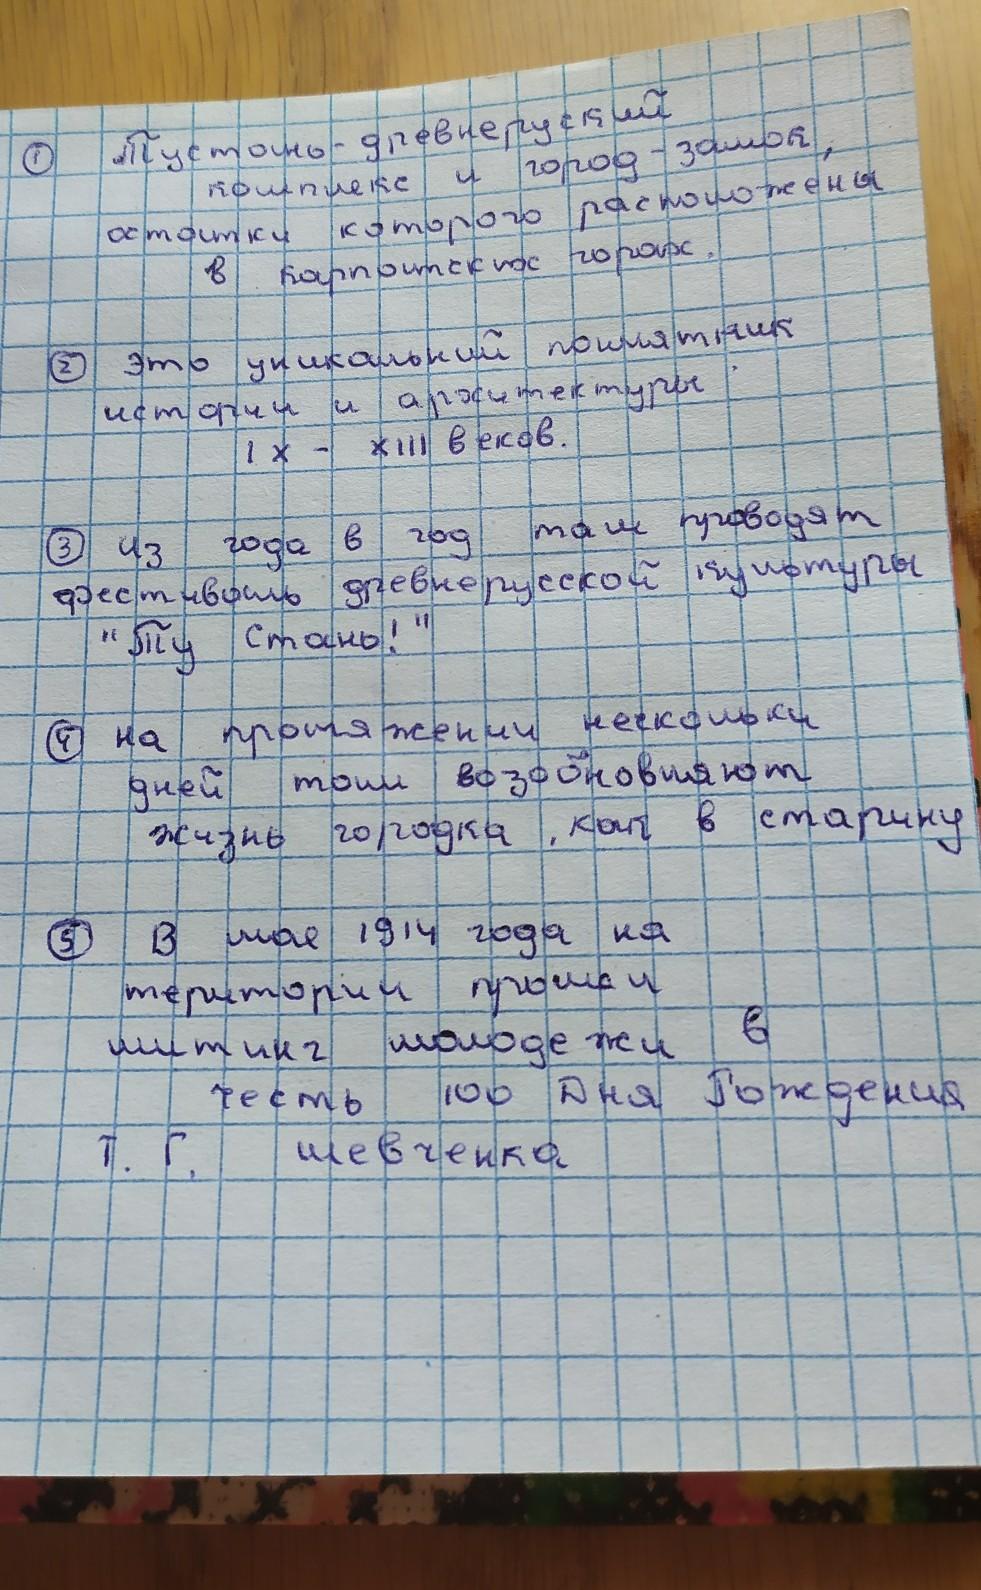 ① Тустань-древнеруский
комплекс и город-замок,
остатки которого расположены
в карпатских горах.
② Это уникальний памятник
истории и архитектуры
IX - XIII веков.
③ Из года в год там проводят
фестиваль древнерусской культуры
"Ту Стань!"
④ на протяжении нескольки
дней там возобновляют
жизнь городка, как в старину
⑤ В мае 1914 года на
територии прошли
митинг молодежи в
честь 100 Дня Рождения
Т. Г. Шевченка